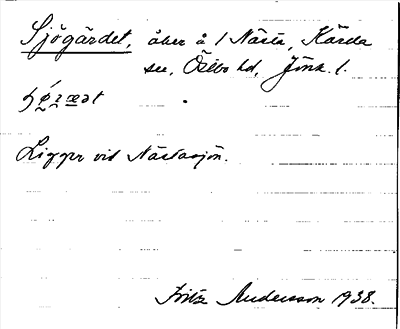 Sjögärdet, åker å 1 Nästa, Kärda
sn, Östbo hd, Jönk. l.
Ligger vid Nästasjön.
Fritz Andersson 1938.